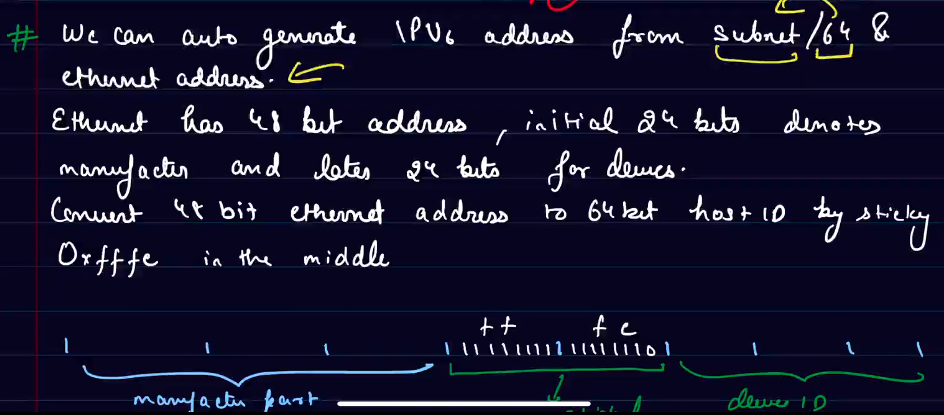 # We can auto generate IPV6 address from subnet/64 &
ethernet address.
Ethernet has 48 bit address, initial 24 bits denotes
manufacter and later 24 bits for devices.
Convert 48 bit ethernet address to 64 bit host ID by sticky
0xfffe in the middle
ff fe
1111111111111110
manufacter part device ID